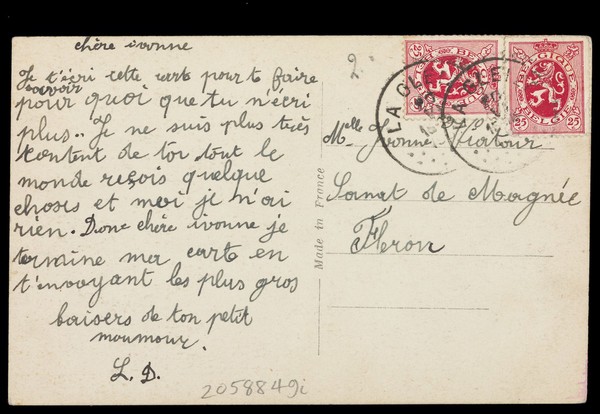 chère ivonne
Je t'écri cette carte pour te faire
savoir
pour quoi que tu n'écri
plus.. Je ne suis plus très
content de toi tout le
monde reçois quelque
choses et moi je n'ai
rien. Donc chère ivonne je
termine ma carte en
t'envoyant les plus gros
baisers de ton petit
moumour.
L. D.
2058849i
Made in France
BELGIQUE
BELGIE
25
25
Melle Ivonne
Sanat de Magnée
Fleron